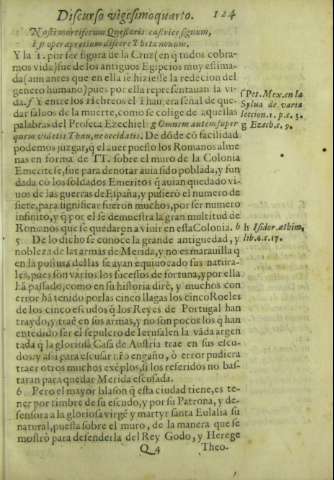 Discurso vigesimoquarto. 124
Nosti mortiferum Quæstoris castrice signum,
Est operæpretium discere Theta nouum,
Y la T. por ser figura de la Cruz (en q todos cobra-
mos vida) fue de los antiguos Egipcios muy estima-
da (aun antes que en ella se hiziesse la redecion del
genero humano) pues por ella representauan la vi-
da. f Y entre los Hebreos el Thau, era señal de que-
dar saluos de la muerte, como se colige de aquellas
palabras del Profeta Ezechiel: g Omnem autem super
quem videtis Thau, ne occidatis. De dõde cõ facilidad
podemos juzgar, q el auer puesto los Romanos alme
nas en forma de TT. sobre el muro de la Colonia
Emerite͂se, fue para denotar auia sido poblada, y fun
dada cõ los soldados Emeritos q auian quedado vi-
uos de las guerras de España, y pusierõ el numero de
siete, para significar fueron muchos, por ser numero
infinito, y q por el se demuestra la gran multitud de
Romanos que se quedaron a viuir en esta Colonia. h
5 De lo dicho se conoce la grande antiguedad, y
nobleza de las armas de Merida, y no es marauilla q
en la postura dellas se ayan equiuocado sus natura-
les, pues son varios los sucessos de fortuna, y por ella
hã passado, como en su historia dirè, y muchos con
error hã tenido por las cinco llagas los cinco Roeles
de los cinco escudos q los Reyes de Portugal han
traydo, y traẽ en sus armas, y no son pocos los q han
entendido ser el sepulcro de Ierusalen la vãda argen
tada q la gloriosa Casa de Austria trae en sus escu-
dos: y assi para escusar este engaño, ò error pudiera
traer otros muchos exẽplos, si los referidos no bas-
taran para quedar Merida escusada.
6 Pero el mayor blason q esta ciudad tiene, es te-
ner por timbre de su escudo, y por su Patrona, y de-
fensora a la gloriosa virgẽ y martyr santa Eulalia su
natural, puesta sobre el muro, de la manera que se
mostrò para defenderla del Rey Godo, y Herege
Q 4 Theo.
f Pet. Mex. en la
Sylua de varia
leccion. 1. p. c. 3.
g Ezech. c. 9.
h Isidor. æthim.
lib. 4. c. 17.